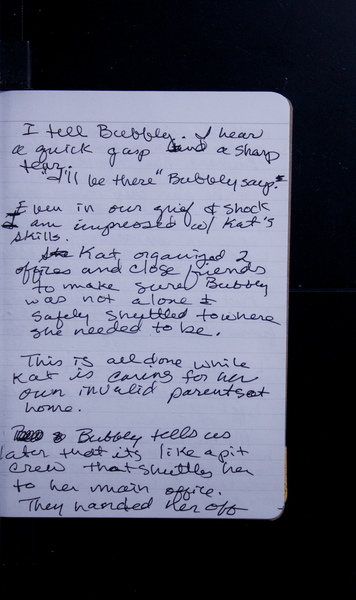 I tell Bubbly. I hear
a quick gasp and a sharp
tear.
"I'll be there" Bubbly says.
Even in our grief & shock
I am impressed w/ Kat's
skills.
Kat organized 2
offices and close friends
to make sure Bubbly
was not alone &
safely shuttled to where
she needed to be.
This is all done while
Kat is caring for her
own invalid parents at
home.
Bubbly tells us
later that its like a pit
crew that shuttles her
to her main office.
They handed her off